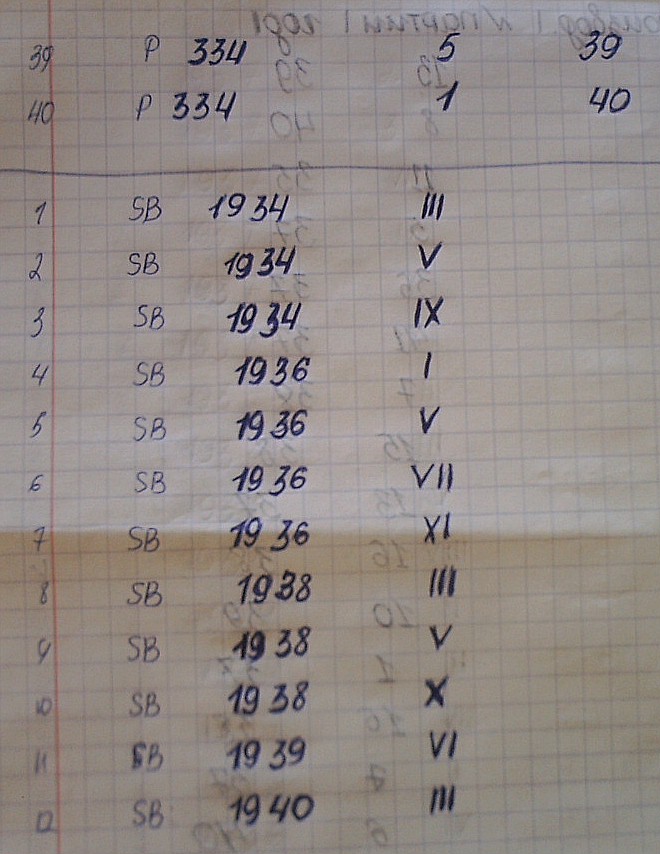 39 P 334 5 39
40 P 334 1 40
1 SB 1934 III
2 SB 1934 V
3 SB 1934 IX
4 SB 1936 I
5 SB 1936 V
6 SB 1936 VII
7 SB 1936 XI
8 SB 1938 III
9 SB 1938 V
10 SB 1938 X
11 SB 1939 VI
12 SB 1940 III